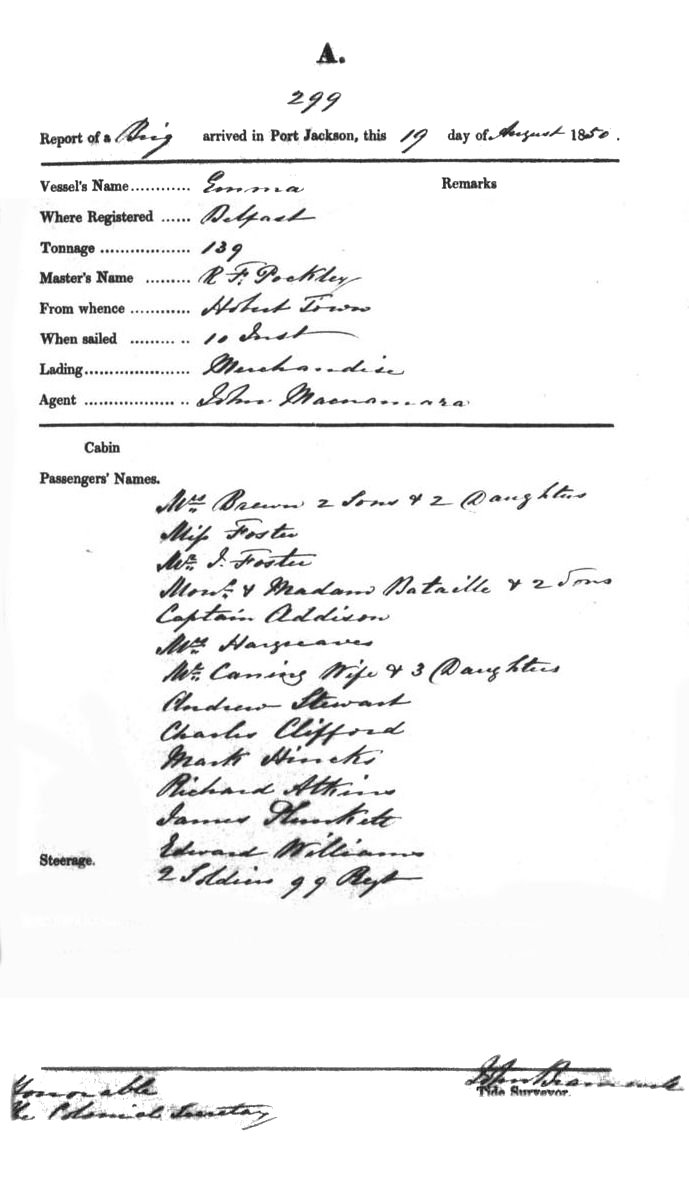 A.
299
Report of a Brig arrived in Port Jackson, this 19 day of August 1850.
Vessel's Name............ Emma Remarks
Where Registered ...... Belfast
Tonnage .................. 139
Master's Name ......... R F. Pockley
From whence ............ Hobart Town
When sailed ......... .. 10 Inst
Lading..................... Merchandise
Agent .................. .. John Macnamara
Cabin
Passengers' Names.
Mrs Brown 2 Sons & 2 Daughters
Miss Foster
Mr J. Foster
Monsr & Madam Bataille & 2 Sons
Captain Addison
Mrs Hargreaves
Mr Caning Wife & 3 Daughters
Andrew Stewart
Charles Clifford
Mark Hincks
Richard Atkins
James Plunkett
Edward Williams
Steerage. 2 Soldiers 99 Regt
Honorable
The Colonial Secretary
John
Tide Surveyor.